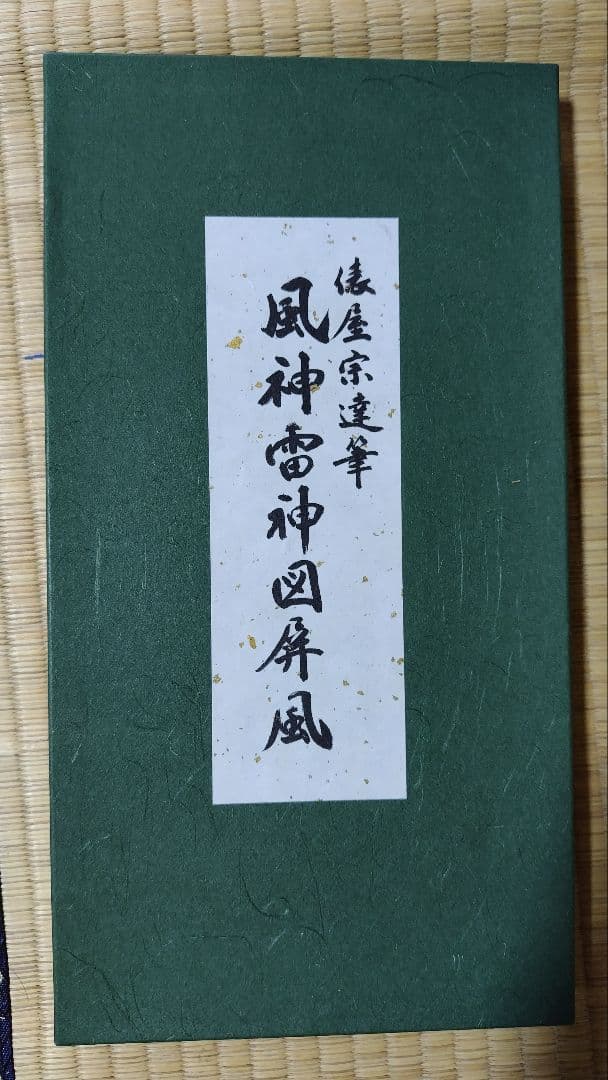 俵屋宗達筆
風神雷神図屏風